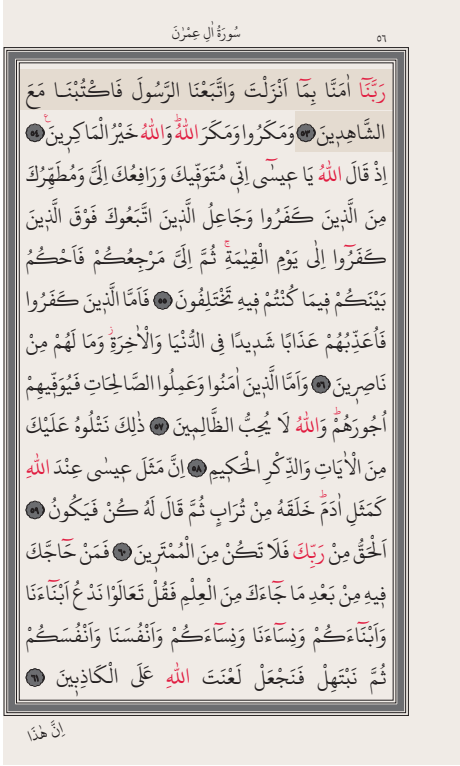 سُورَةُ اٰلِ عِمْرٰنَ
٥٦
رَبَّنَٓا اٰمَنَّا بِمَٓا اَنْزَلْتَ وَاتَّبَعْنَا الرَّسُولَ فَاكْتُبْنَا مَعَ
الشَّاهِد۪ينَ ٥٣ وَمَكَرُوا وَمَكَرَ اللّٰهُۜ وَاللّٰهُ خَيْرُ الْمَاكِر۪ينَ۟ ٥٤
اِذْ قَالَ اللّٰهُ يَا ع۪يسٰٓى اِنّ۪ي مُتَوَفّ۪يكَ وَرَافِعُكَ اِلَيَّ وَمُطَهِّرُكَ
مِنَ الَّذ۪ينَ كَفَرُوا وَجَاعِلُ الَّذ۪ينَ اتَّبَعُوكَ فَوْقَ الَّذ۪ينَ
كَفَرُٓوا اِلٰى يَوْمِ الْقِيٰمَةِۚ ثُمَّ اِلَيَّ مَرْجِعُكُمْ فَاَحْكُمُ
بَيْنَكُمْ ف۪يمَا كُنْتُمْ ف۪يهِ تَخْتَلِفُونَ ٥٥ فَاَمَّا الَّذ۪ينَ كَفَرُوا
فَاُعَذِّبُهُمْ عَذَابًا شَد۪يدًا فِي الدُّنْيَا وَالْاٰخِرَةِۘ وَمَا لَهُمْ مِنْ
نَاصِر۪ينَ ٥٦ وَاَمَّا الَّذ۪ينَ اٰمَنُوا وَعَمِلُوا الصَّالِحَاتِ فَيُوَفّ۪يهِمْ
اُجُورَهُمْۜ وَاللّٰهُ لَا يُحِبُّ الظَّالِم۪ينَ ٥٧ ذٰلِكَ نَتْلُوهُ عَلَيْكَ
مِنَ الْاٰيَاتِ وَالذِّكْرِ الْحَك۪يمِ ٥٨ اِنَّ مَثَلَ ع۪يسٰى عِنْدَ اللّٰهِ
كَمَثَلِ اٰدَمَۜ خَلَقَهُ مِنْ تُرَابٍ ثُمَّ قَالَ لَهُ كُنْ فَيَكُونُ ٥٩
اَلْحَقُّ مِنْ رَبِّكَ فَلَا تَكُنْ مِنَ الْمُمْتَر۪ينَ ٦٠ فَمَنْ حَٓاجَّكَ
ف۪يهِ مِنْ بَعْدِ مَا جَٓاءَكَ مِنَ الْعِلْمِ فَقُلْ تَعَالَوْا نَدْعُ اَبْنَٓاءَنَا
وَاَبْنَٓاءَكُمْ وَنِسَٓاءَنَا وَنِسَٓاءَكُمْ وَاَنْفُسَنَا وَاَنْفُسَكُمْ
ثُمَّ نَبْتَهِلْ فَنَجْعَلْ لَعْنَتَ اللّٰهِ عَلَى الْكَاذِب۪ينَ ٦١
اِنَّ هٰذَا